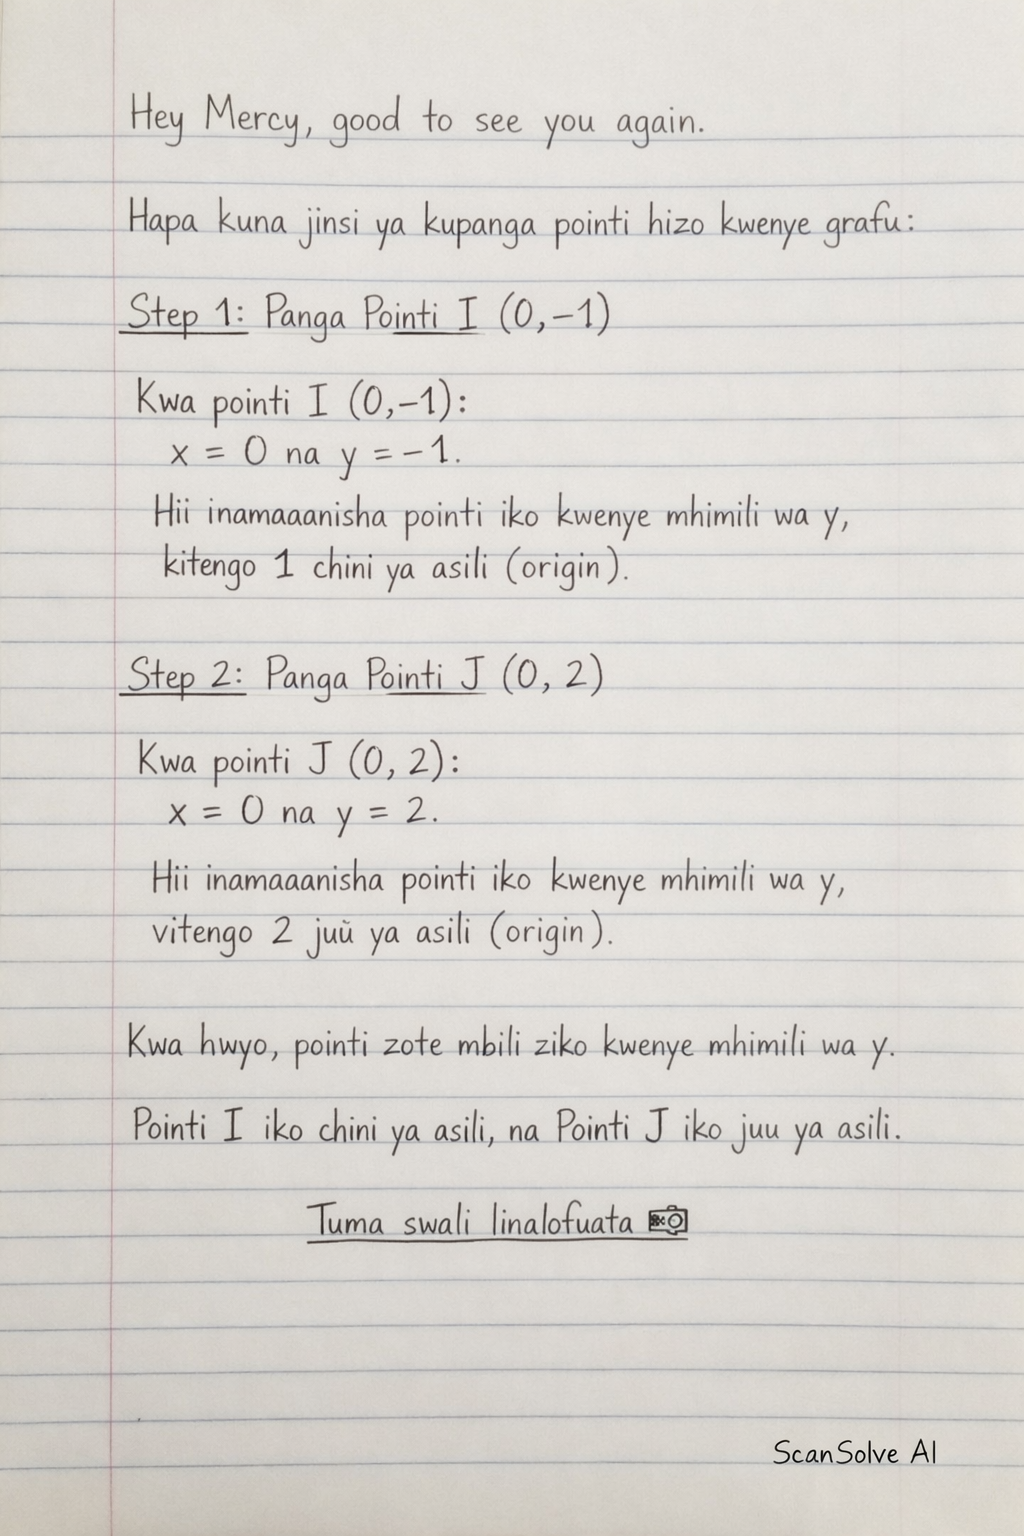 Hey Mercy, good to see you again.
Hapa kuna jinsi ya kupanga pointi hizo kwenye grafu:
Step 1: Panga Pointi I (0,−1)
Kwa pointi I (0,−1):
x = 0 na y = −1.
Hii inamaaanisha pointi iko kwenye mhimili wa y,
kitengo 1 chini ya asili (origin).
Step 2: Panga Pointi J (0, 2)
Kwa pointi J (0, 2):
x = 0 na y = 2.
Hii inamaaanisha pointi iko kwenye mhimili wa y,
vitengo 2 juŭ ya asili (origin).
Kwa hwyo, pointi zote mbili ziko kwenye mhimili wa y.
Pointi I iko chini ya asili, na Pointi J iko juu ya asili.
Tuma swali linalofuata 📷
ScanSolve AI